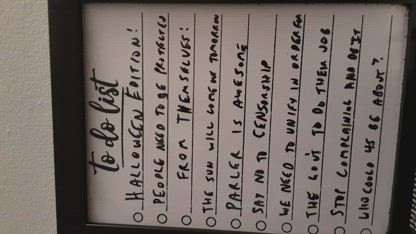 to do list
HALLOWEEN EDITION!
PEOPLE NEED TO BE PROTECTED
FROM THEMSELVES!
THE SUN WILL COME OUT TOMORROW
PARLER IS AWESOME
SAY NO TO CENSORSHIP
WE NEED TO UNIFY IN ORDER FOR
THE GOV'T TO DO THEIR JOB
STOP COMPLAINING AND DO IT
WHO COULD BE ABOUT?